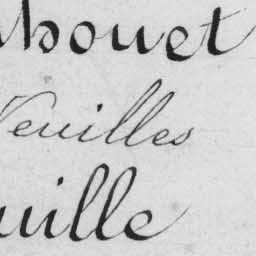 bouet
Veuilles
uille